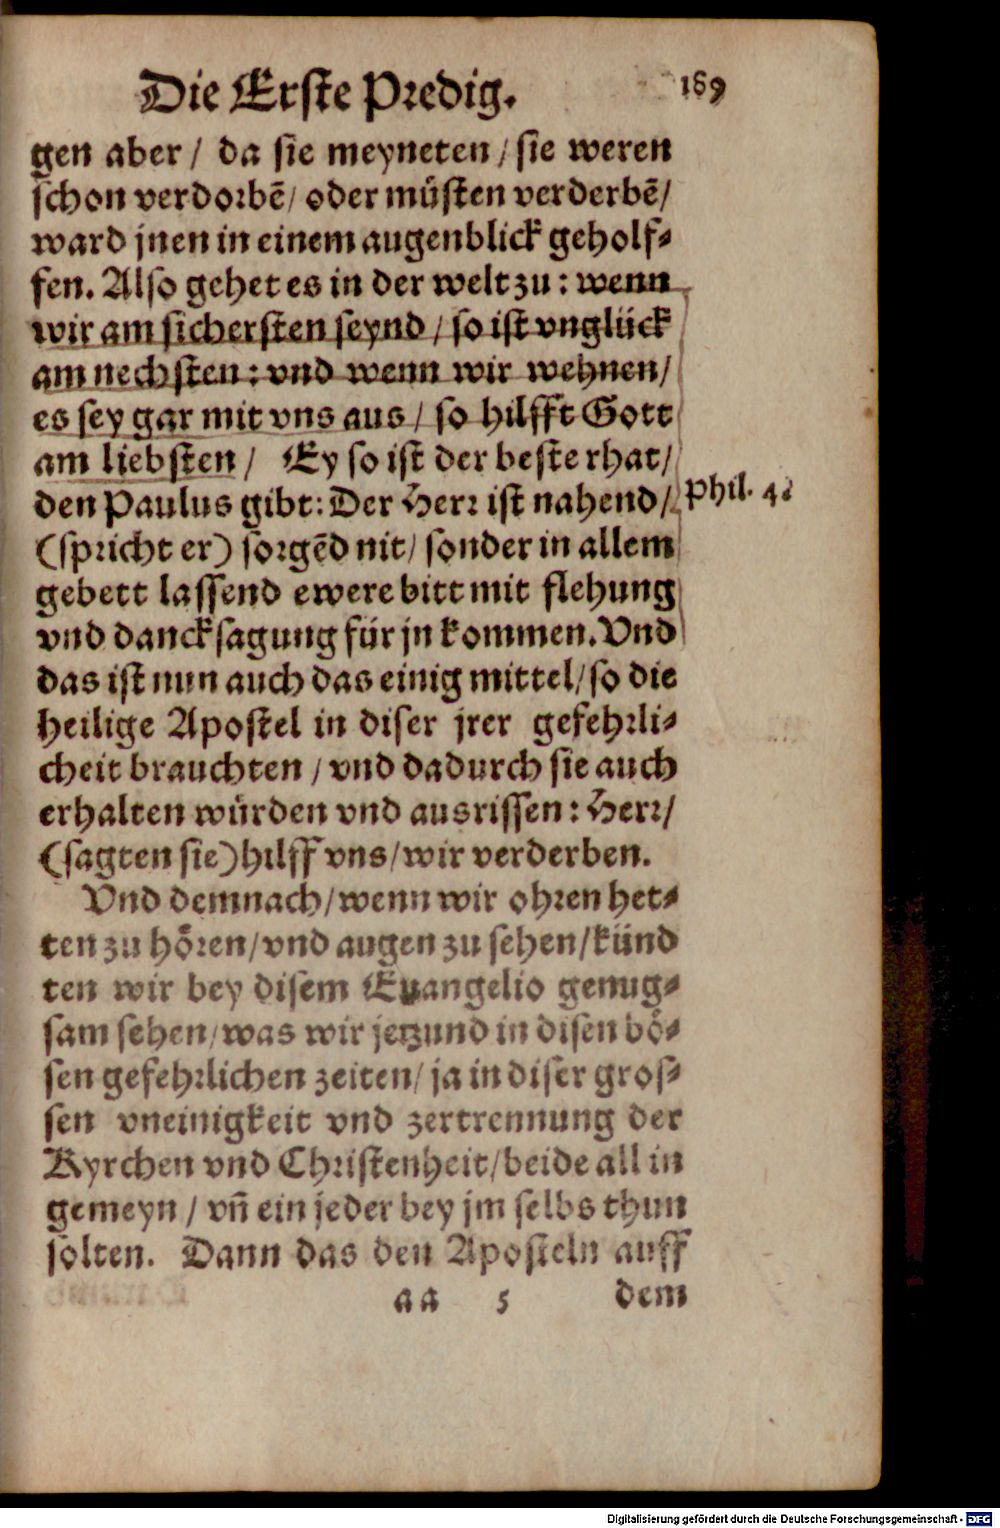 Die Erste Predig. 189
gen aber / da sie meyneten / sie weren
schon verdorbẽ / oder müsten verderbẽ /
ward jnen in einem augenblick geholf-
fen. Also gehet es in der welt zu: wenn
wir am sichersten seynd / so ist vnglück
am nechsten: vnd wenn wir wehnen /
es sey gar mit vns aus / so hilfft Gott
am liebsten / Ey so ist der beste rhat /
den Paulus gibt: Der Herr ist nahend / Phil. 4.
(spricht er) sorgẽd nit / sonder in allem
gebett lassend ewere bitt mit flehung
vnd dancksagung für jn kommen. Vnd
das ist nun auch das einig mittel / so die
heilige Apostel in diser jrer gefehrli-
cheit brauchten / vnd dadurch sie auch
erhalten würden vnd ausrissen: Herr /
(sagten sie) hilff vns / wir verderben.
Vnd demnach / wenn wir ohren het-
ten zu hören / vnd augen zu sehen / künd
ten wir bey disem Euangelio genug-
sam sehen / was wir jetzund in disen bö-
sen gefehrlichen zeiten / ja in diser gros-
sen vneinigkeit vnd zertrennung der
Kyrchen vnd Christenheit / beide all in
gemeyn / vñ ein jeder bey jm selbs thun
solten. Dann das den Aposteln auff
aa 5 dem
Digitalisierung gefördert durch die Deutsche Forschungsgemeinschaft - DFG